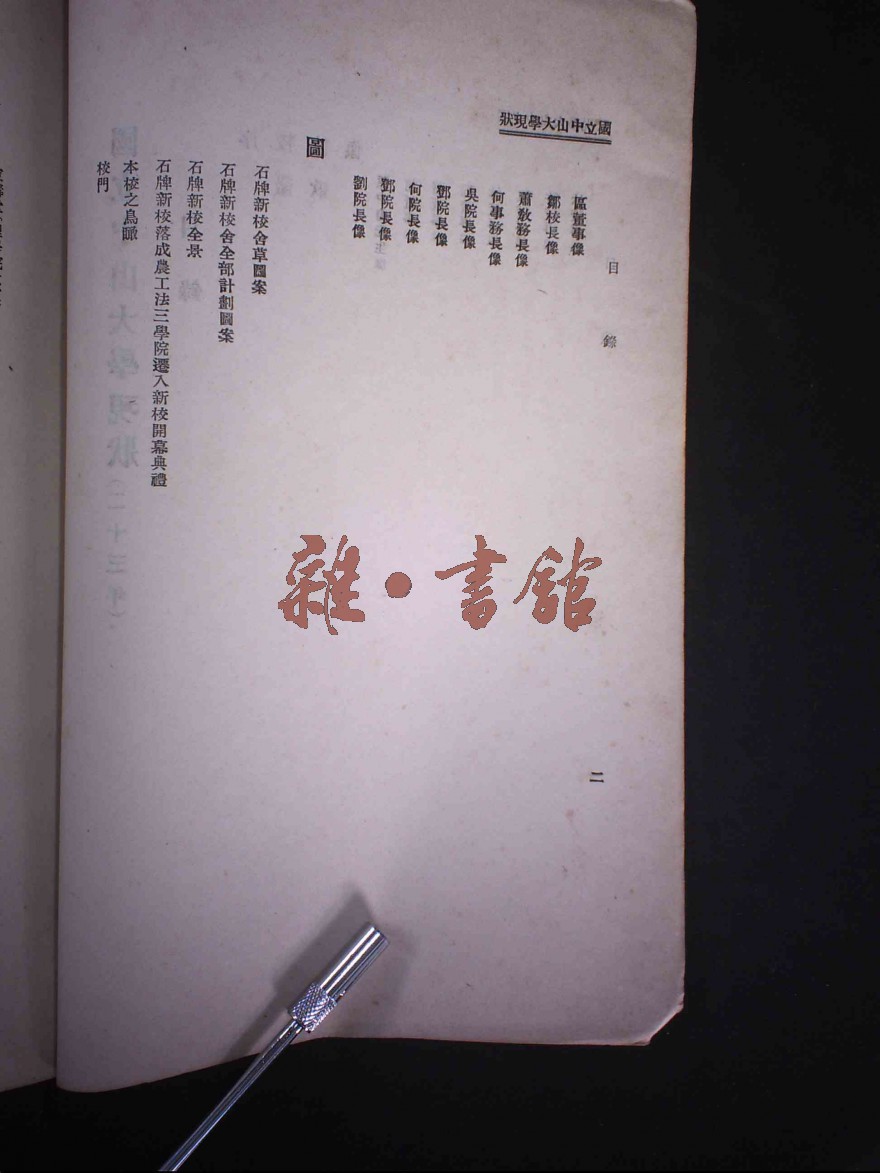 國立中山大學現狀
目錄
二
區董事像
鄒校長像
蕭教務長像
何事務長像
吳院長像
鄧院長像
何院長像
鄧院長像
劉院長像
圖
石牌新校舍草圖案
石牌新校舍全部計劃圖案
石牌新校全景
石牌新校落成農工法三學院遷入新校開幕典禮
本校之鳥瞰
校門
雜·書館